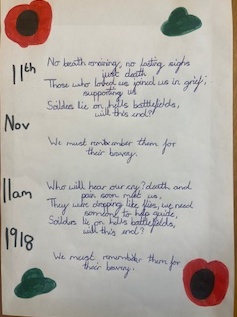 11th
No breath remaining, no lasting sighs
just death
Those who loved us joined us in grief;
supporting us
Soldiers lie on hills battlefields,
will this end?
Nov
We must remember them for
their bravery.
11am
Who will hear our cry? death and
pain soon meet us,
They were dropping like flies, we need
someone to help guide,
Soldiers lie on hills battlefields,
will this end?
1918
We must remember them for
their bravery.